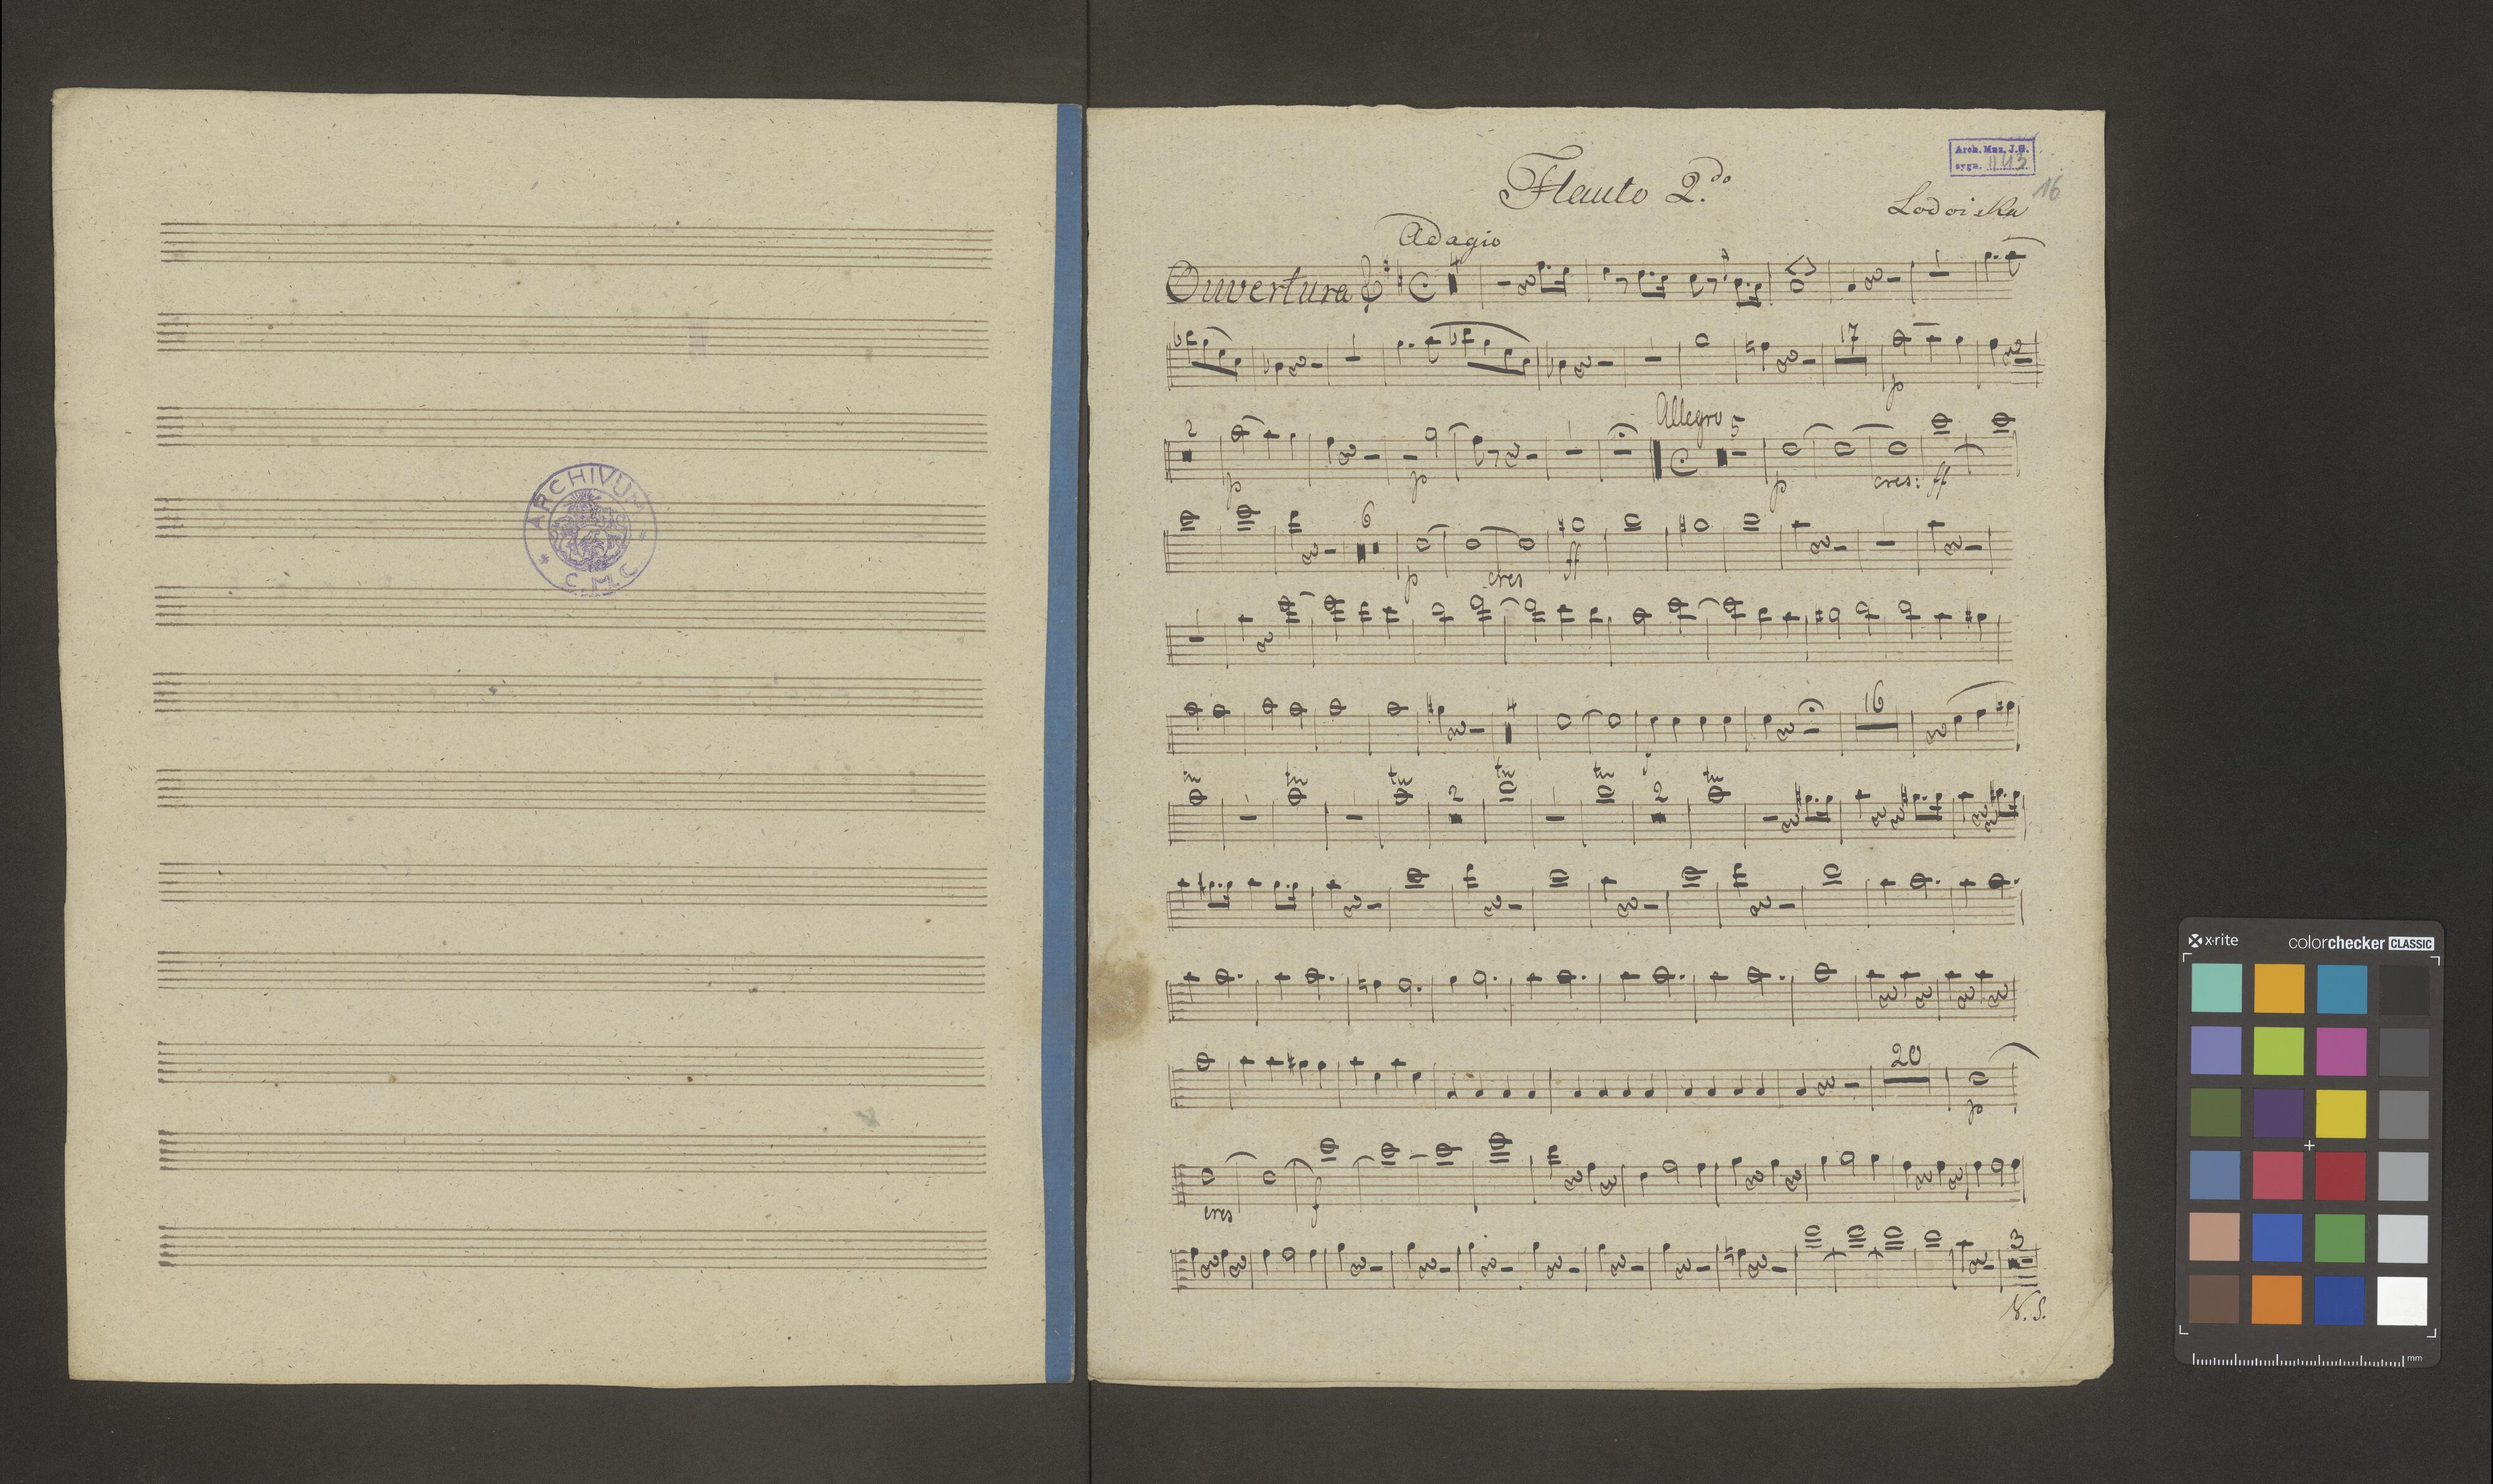 ARCHIVUM
* C.M.C *
Arch. Muz. J.G.
sygn. II 43
16
Flauto 2.do
Lodoiska
Adagio
Ouvertura
4
17
p
2
Allegro
5
p
p
p
cres:
ff
6
p
cres
ff
4
16
tr
tr
tr
2
tr
tr
2
tr
20
p
cres
f
3
V. S.
x-rite
colorchecker CLASSIC
mm